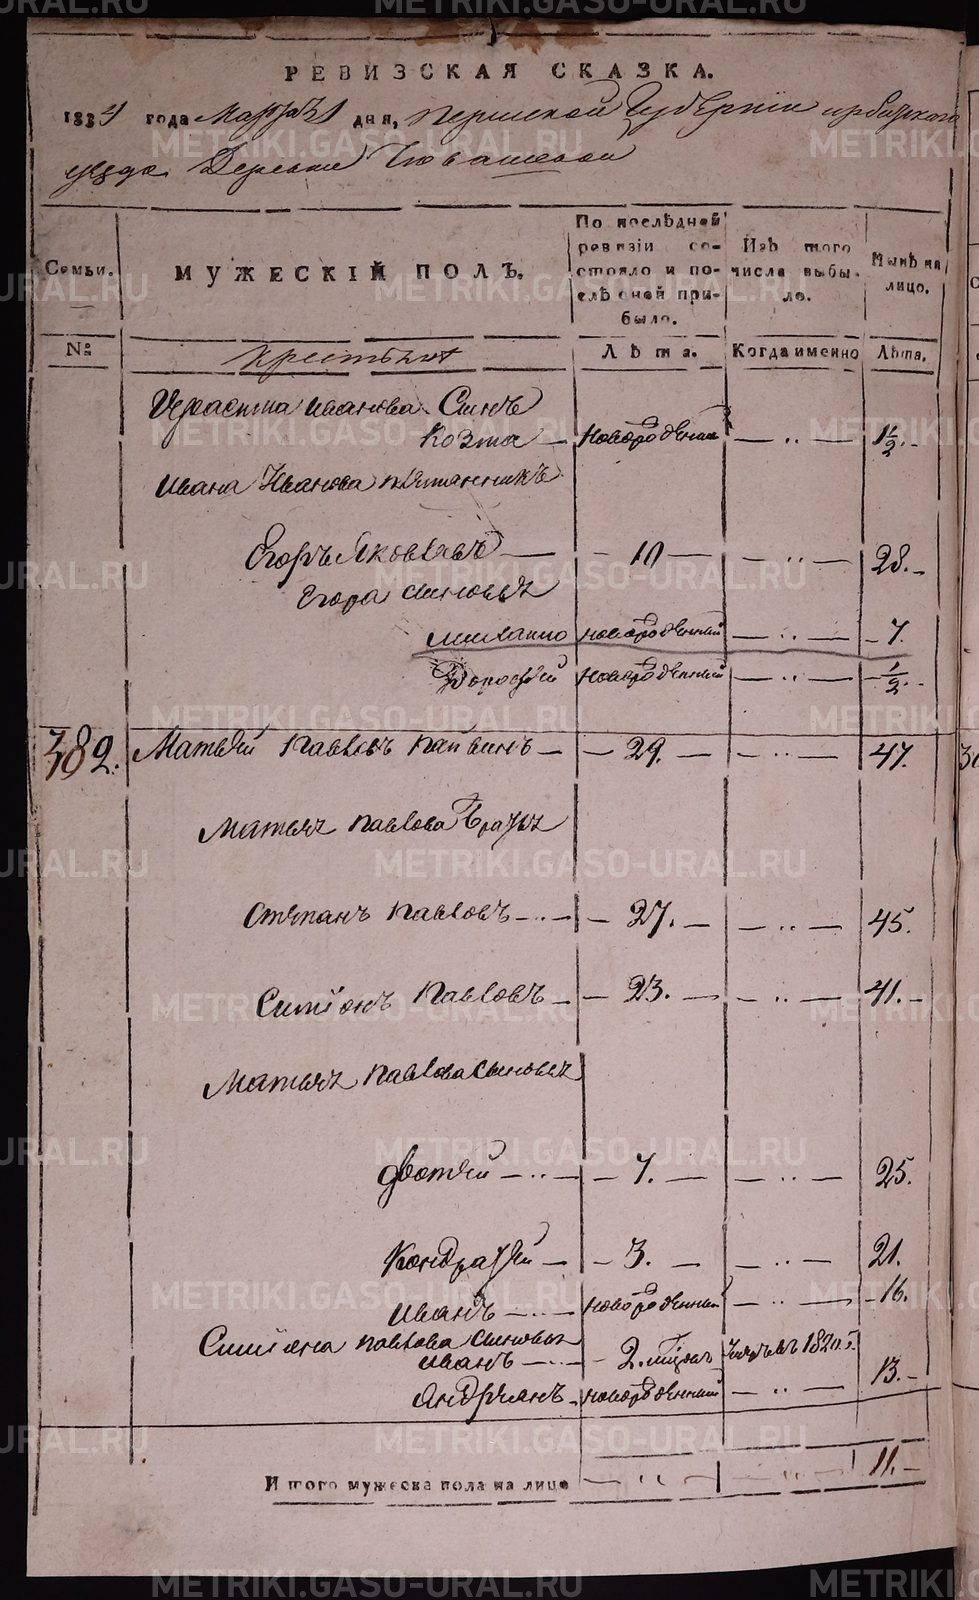 РЕВИЗСКАЯ СКАЗКА.
1834 года Марта 1 дня, Пермской Губернии Ирбицкого
уезда Деревни
Семьи.
МУЖЕСКІЙ ПОЛЪ.
По послѣдней ревизіи состояло и послѣ оной прибыло.
Изъ того числа выбыло.
Нынѣ на лицо.
№
Крестьян
Лѣта.
Когда именно
Лѣта.
Иванова Сынъ
Козма — новорожденны — ·· — 1½.
Ивана Иванова племянникъ
Егоръ Яковлевъ — 10 — ·· — 28.
Егора сыновья
новорожденный — ·· — 7.
Дорофей новорожденный — ·· — ½.
382. Матвей Павловъ — 29. — ·· — 47.
Матвея Павлова Братья
Степанъ Павловъ — ·· — 27. — ·· — 45.
Симіонъ Павловъ — 23. — ·· — 41.
Матвея Павлова сыновья
Фотей — ·· — 7. — ·· — 25.
Кондратей — 3. — ·· — 21.
Иванъ — новорожденный — ·· — 16.
Симіона Павлова сыновья
Иванъ — 2. 1820
Андриянъ новорожденный — ·· — 13.
Итого мужеска пола на лице — ·· — 11.
METRIKI.GASO-URAL.RU